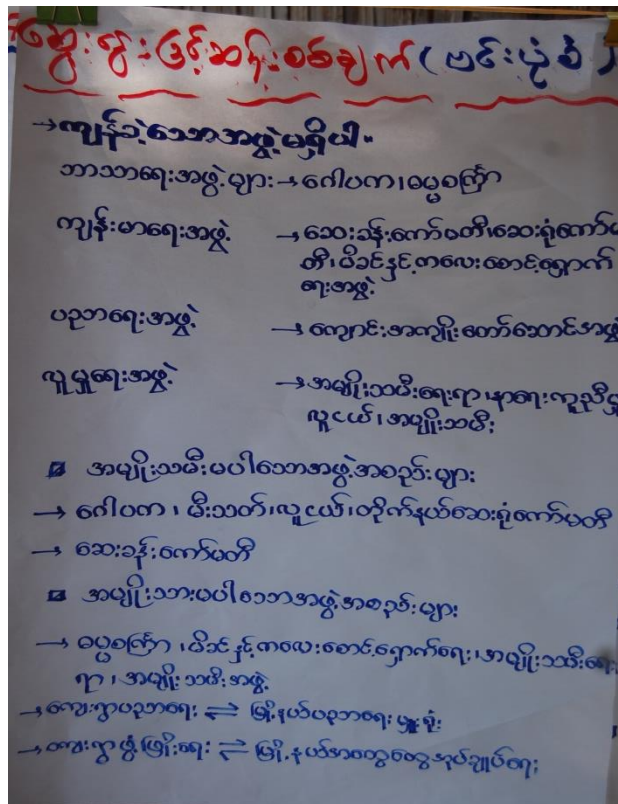 ဆွေးနွေးခြင့်ဆန်းစစ်ချက် (ဗင်းပုံစံ)
→ ကျန်ခဲ့သောအဖွဲ့မရှိပါ။
ဘာသာရေးအဖွဲ့များ → ဂေါပက၊ ဓမ္မစင်္ကြာ
ကျန်းမာရေးအဖွဲ့ → ဆေးခန်းကော်မတီ၊ ဆေးရုံကော်မ
တီ၊ မိခင်နှင့်ကလေးစောင့်ရှောက်
ရေးအဖွဲ့
ပညာရေးအဖွဲ့ → ကျောင်းအကျိုးတော်ဆောင်အဖွဲ့
လူမှုရေးအဖွဲ့ → အမျိုးသမီးရေးရာ၊ နာရေးကူညီမှု
လူငယ်၊ အမျိုးသမီး
အမျိုးသမီးမပါသောအဖွဲ့အစည်းများ
→ ဂေါပက၊ မီးသတ်၊ လူငယ်၊ တိုက်နယ်ဆေးရုံကော်မတီ
→ ဆေးခန်းကော်မတီ
အမျိုးသားမပါသောအဖွဲ့အစည်းများ
→ ဓမ္မစင်္ကြာ၊ မိခင်နှင့်ကလေးစောင့်ရှောက်ရေး၊ အမျိုးသမီးရေး
ရာ၊ အမျိုးသမီးအဖွဲ့
→ ကျေးရွာပညာရေး ⇌ မြို့နယ်ပညာရေးမှူးရုံး
→ ကျေးရွာဖွံ့ဖြိုးရေး ⇌ မြို့နယ်အထွေထွေအုပ်ချုပ်ရေး